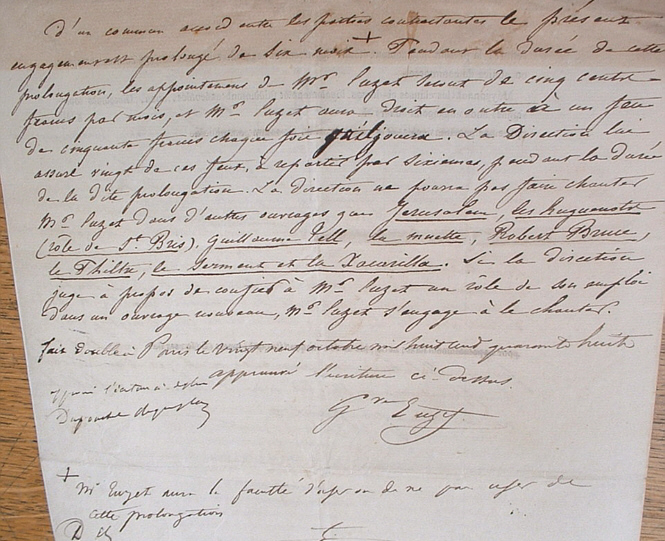 d'un commun accord entre les parties contractantes le présent
engagement est prolongé de Six mois +. Pendant la durée de cette
prolongation, les appointemens de Mr. Euzet seront de cinq cents
francs par mois, et Mr. Euzet aura droit en outre à un feu
de cinquante francs chaque fois qu'il jouera. La Direction lui
assure vingt de ces feux, à répartir par sixièmes, pendant la durée
de la dite prolongation. La direction ne pourra pas faire chanter
Mr. Euzet dans d'autres ouvrages que Jerusalem, les huguenots
(rôle de St. Bris), Guillaume Tell, la muette, Robert Bruce,
le Philtre, le Serment et la Xacarilla. Si la direction
juge à propos de confier à Mr. Euzet un rôle de son emploi
dans un ouvrage nouveau, Mr. Euzet s'engage à le chanter.
fait double à Paris le vingt neuf octobre mil huit cent quarante huit
approuvé l'écriture ci-dessus.
approuvé l'écriture ci dessus
Duponchel
Euzet
+
Mr Euzet aura la faculté d'user ou de ne pas user de
cette prolongation